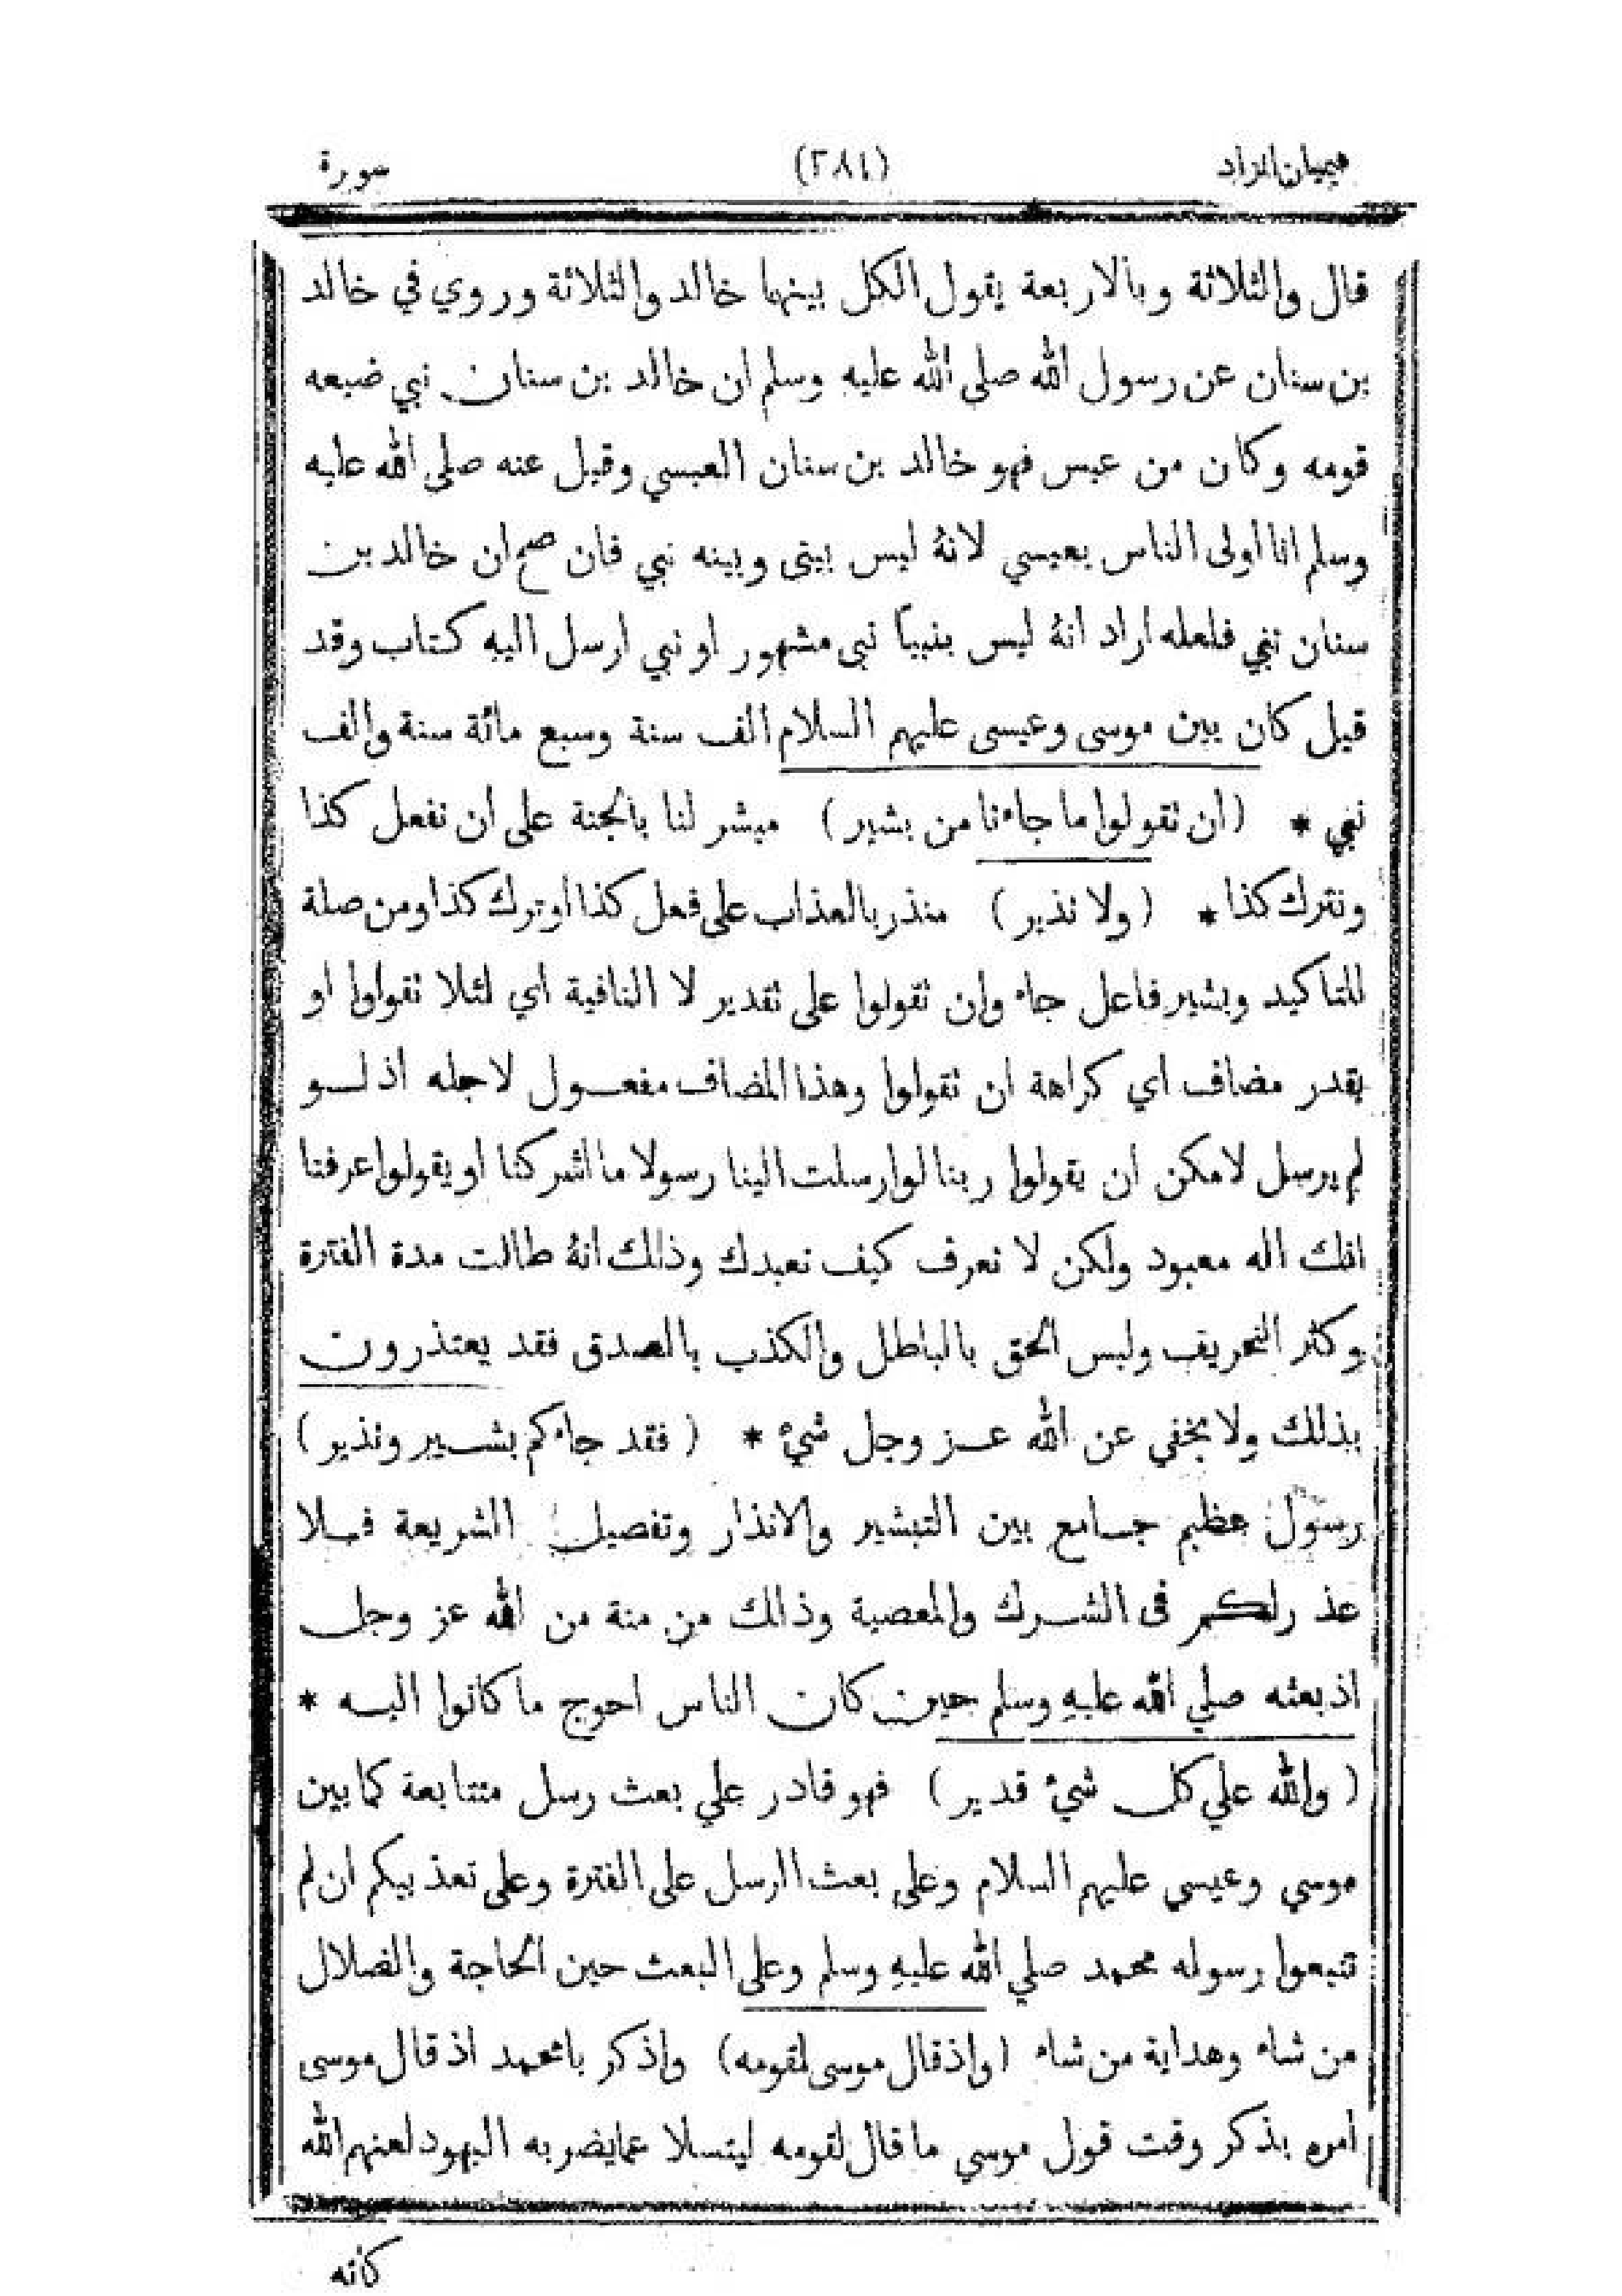 هيميان الزاد (٣٨٤) سورة
قال والثلاثة وبالاربعة يقول الكل بينهما خالد والثلاثة وروي في خالد
بن سنان عن رسول الله صلى الله عليه وسلم ان خالد بن سنان نبي ضيعه
قومه وكان من عبس فهو خالد بن سنان العبسي وقيل عنه صلى الله عليه
وسلم انا اولى الناس بعيسي لانهُ ليس بيني وبينه نبي فان صح ان خالد بن
سنان نبي فلعله اراد انهُ ليس بنبياً نبى مشهور او نبي ارسل اليهِ كتاب وقد
قيل كان بين موسى وعيسى عليهم السلام الف سنة وسبع مائة سنة والف
نبي * (ان تقولوا ما جاءنا من بشير) مبشر لنا بالجنة على ان نفعل كذا
ونترك كذا * (ولا نذير) منذر بالعذاب على فعل كذا او ترك كذا ومن صلة
للتاكيد وبشير فاعل جاء وان تقولوا على تقدير لا النافية اي لئلا تقولوا او
يقدر مضاف اي كراهة ان تقولوا وهذا المضاف مفعول لاجله اذ لو
لم يرسل لامكن ان يقولوا ربنا لوارسلت الينا رسولا ما اشركنا او يقولوا عرفنا
انك اله معبود ولكن لا نعرف كيف نعبدك وذلك انهُ طالت مدة الفترة
وكثر التحريف ولبس الحق بالباطل والكذب بالصدق فقد يعتذرون
بذلك ولا يخفي عن الله عز وجل شيءٌ * (فقد جاءكم بشير ونذير)
رسول عظيم جامع بين التبشير والانذار وتفصيل الشريعة فلا
عذر لكم فى الشرك والمعصية وذلك من منة من الله عز وجل
اذ بعثه صلي الله عليهِ وسلم حين كان الناس احوج ما كانوا اليه *
(والله علي كل شيءٍ قدير) فهو قادر علي بعث رسل متتابعة كما بين
موسي وعيسي عليهم السلام وعلى بعث الرسل على الفترة وعلى تعذيبكم ان لم
تتبعوا رسوله محمد صلي الله عليهِ وسلم وعلى البعث حين الحاجة والضلال
من شاء وهداية من شاء (واذ قال موسى لقومه) واذكر يا محمد اذ قال موسى
امره بذكر وقت قول موسي ما قال لقومه ليتسلا عما يضر به اليهود لعنهم الله
كانه